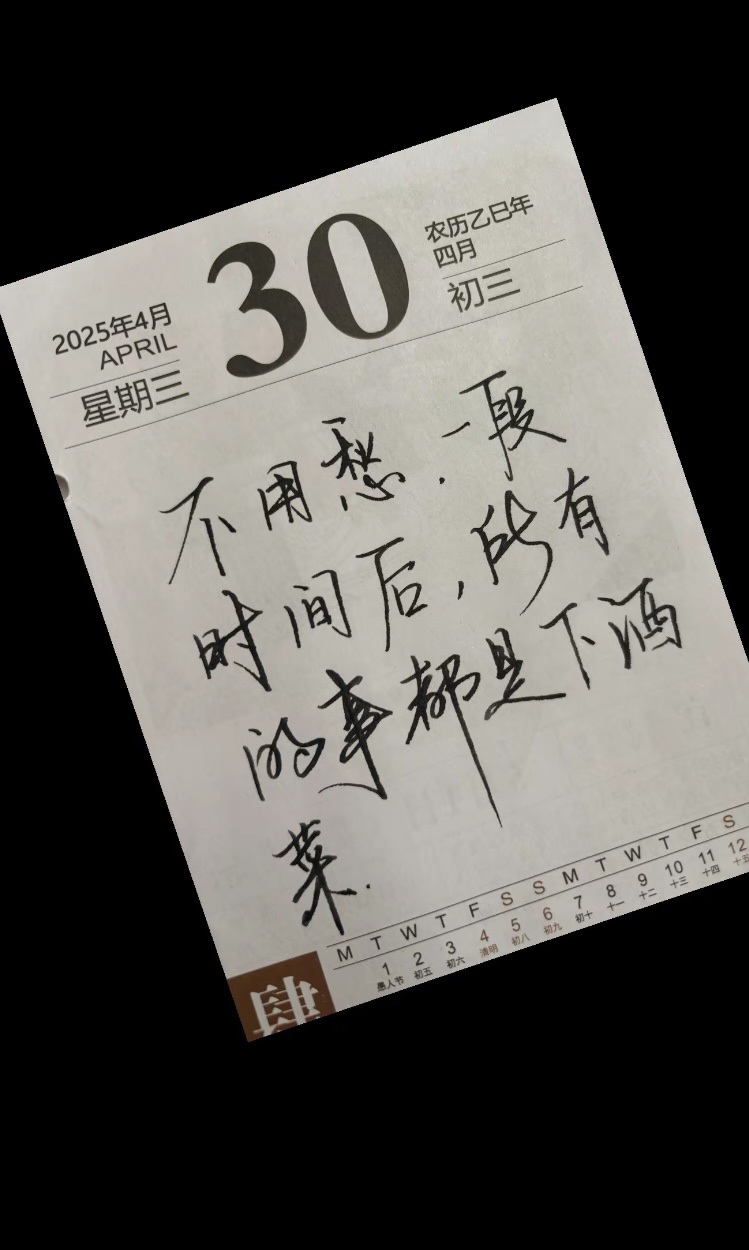 2025年4月
APRIL
星期三
30
农历乙巳年
四月
初三
不用愁.一段
时间后,所有
的事都是下酒
菜.
M T W T F S S M T W T F S
1 2 3 4 5 6 7 8 9 10 11 12
愚人节 初五 初六 清明 初八 初九 初十 十一 十二 十三 十四 十五
肆